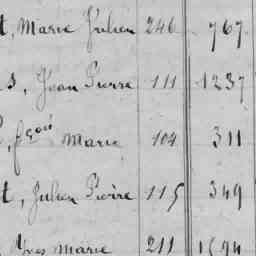 t, Marie Julien 246 767
s, Jean Pierre 111 1237
, fçois Marie 104 311
t, Julien Pierre 115 349
Yves Marie 211 1594